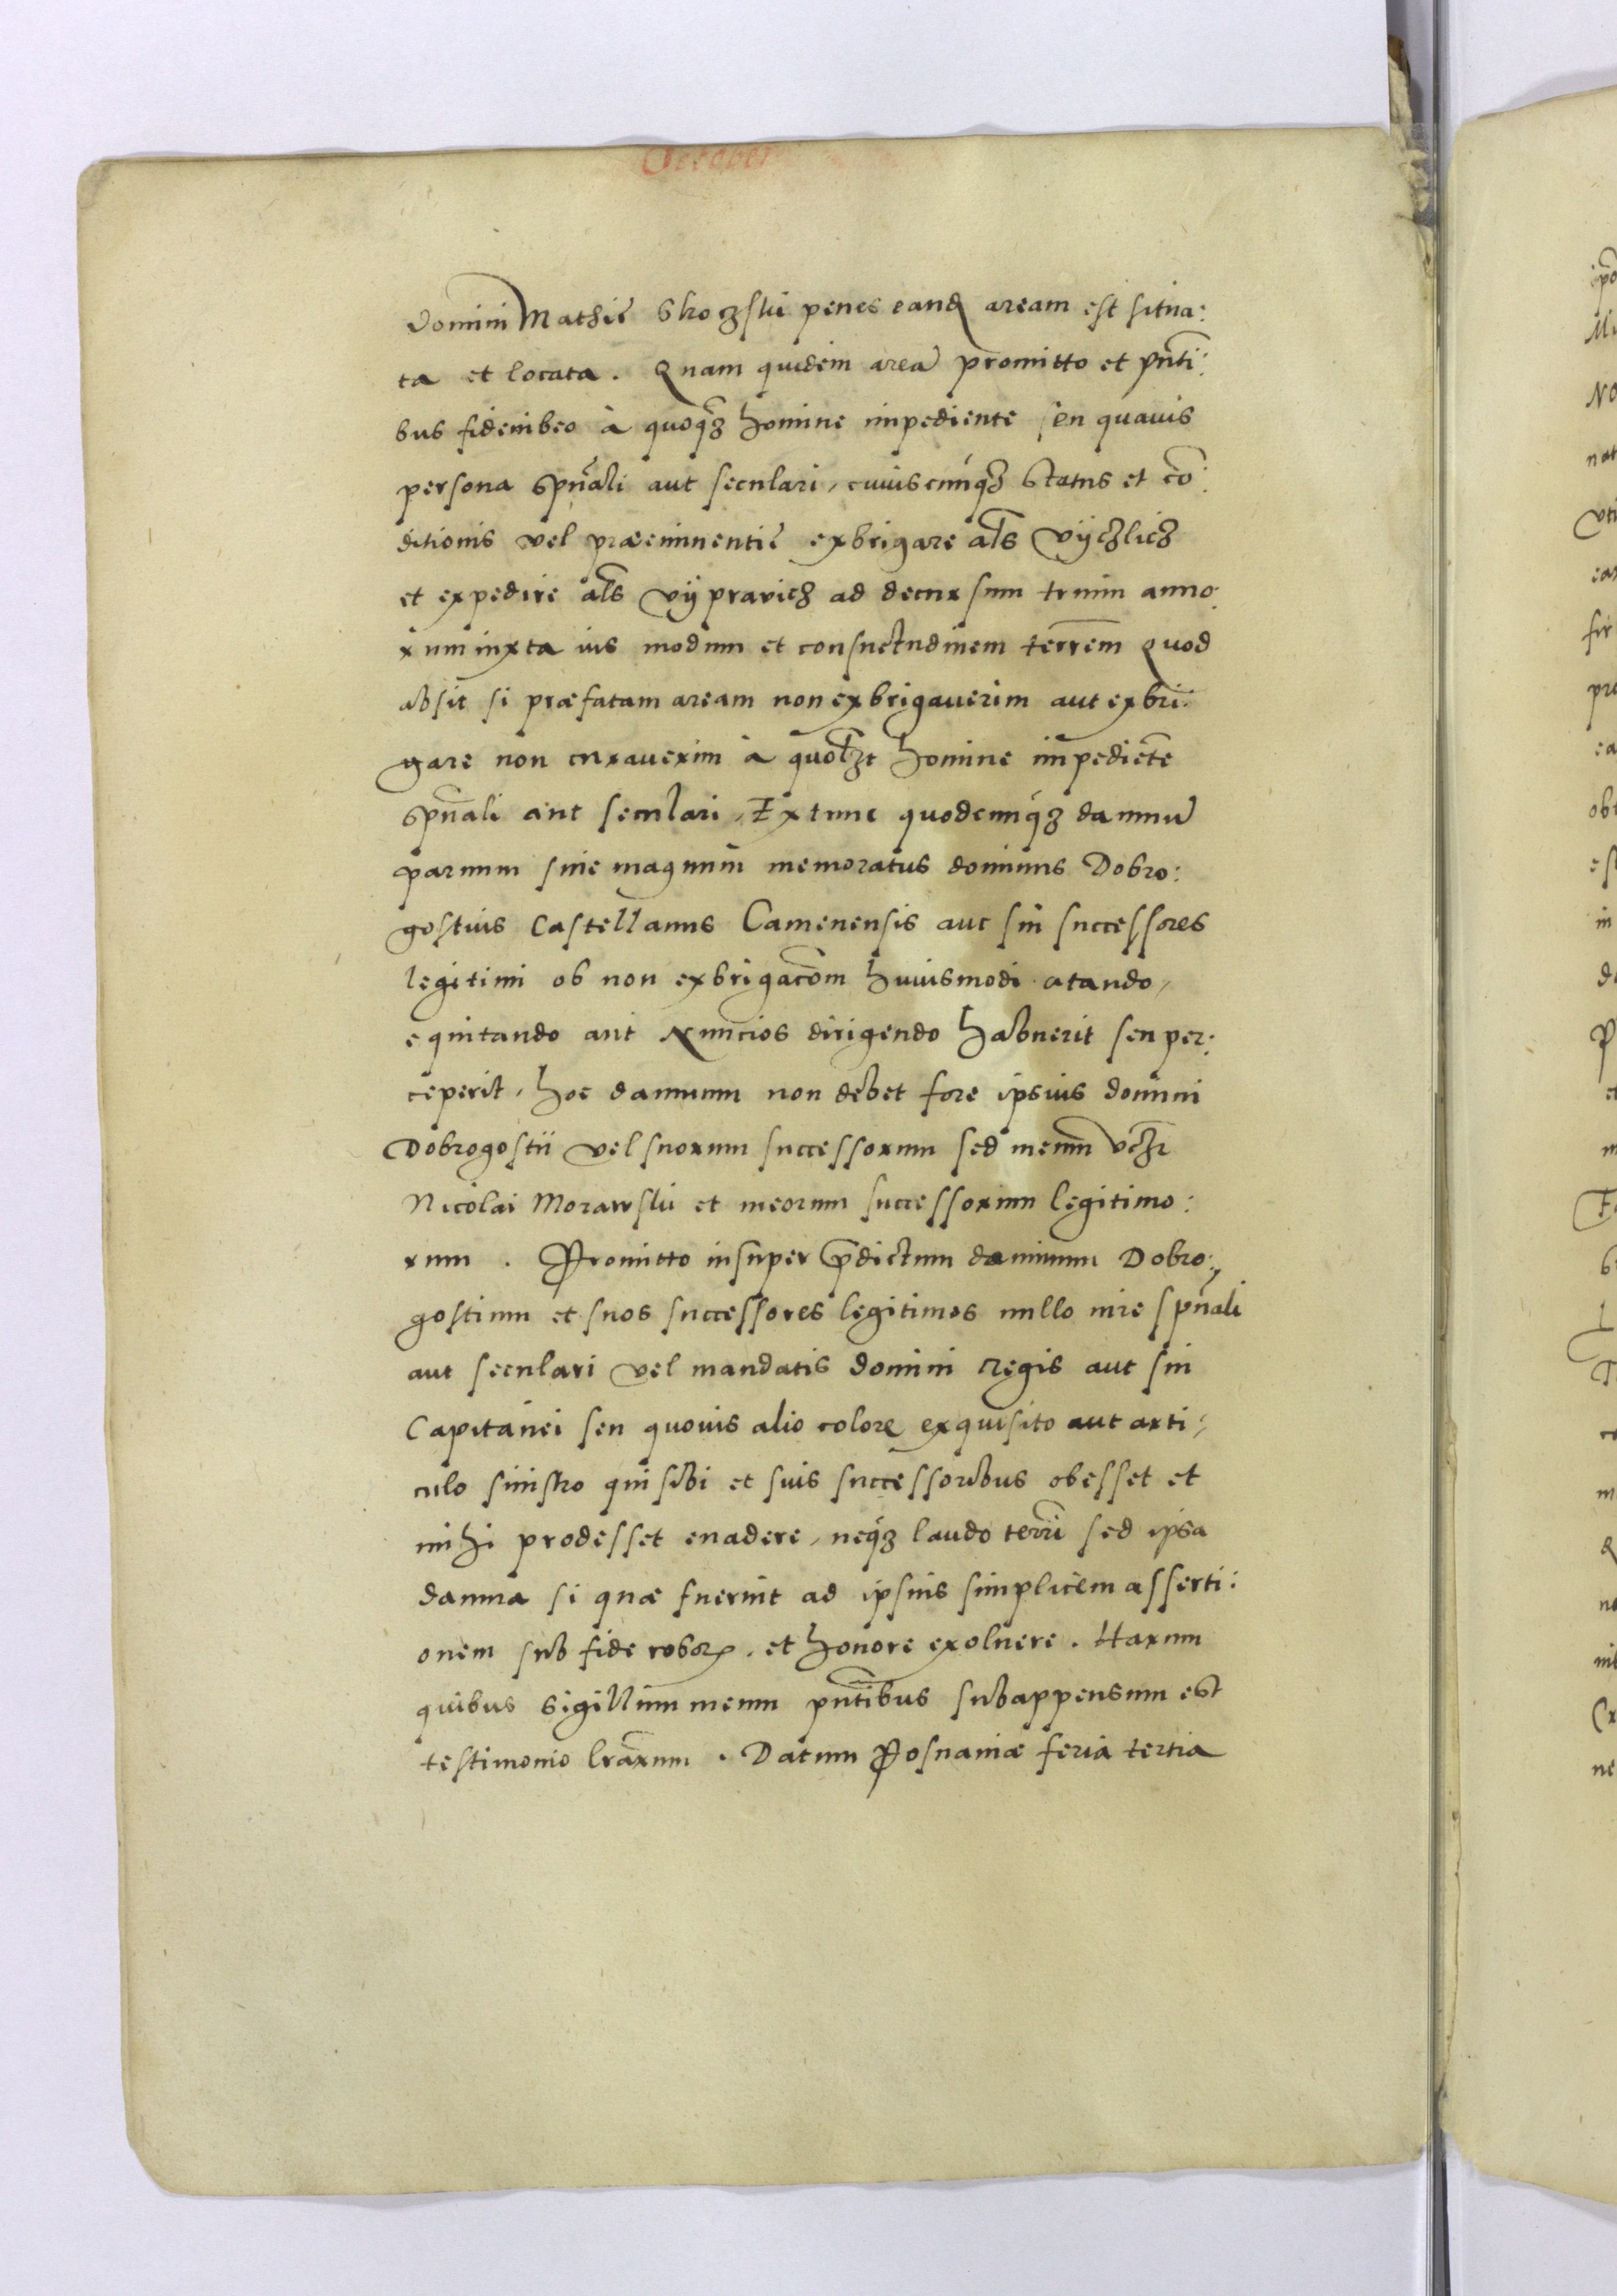 October
domini Mathię Skoczski penes eandꝫ aream est situa:
ta et locata. Quam quidem areā promitto et pn̄ti:
bus fideiubeo à quoqꝫ homine impediente seu quauis
persona spūali aut seculari, cuiuscunqꝫ status et cō:
ditionis vel præeminentię exbrigare al̄s vÿczlicz
et expedire al̄s vÿpravicz ad decursum trium anno:
rum iuxta ius modum et consuetudinem terr̄em Quod
absit si præfatam aream non exbrigauerim aut exbri:
gare non curauerim à quol̄zt homine impediēte
spūali aut seculari, Extunc quodcunqꝫ damnū
paruum siue magnum memoratus dominus Dobro:
gostius Castellanus Camenensis aut sui successores
legitimi ob non exbrigacōm huiusmodi citando,
equitando aut Nuncios dirigendo habuerit seu per:
ceperit, hoc damnum non debet fore ipsius domini
Dobrogostii vel suorum successorum sed meum vcꝫ
Nicolai Morawski et meorum successorum legitimo:
rum. Promitto insuper p̄dictum dominum Dobro:
gostium et suos successores legitimos nullo iure spūali
aut seculari vel mandatis domini Regis aut sui
Capitanei seu quouis alio colore exquisito aut arti:
culo sinistro qui sibi et suis successoribus obesset et
mihi prodesset euadere, neqꝫ laudo terrī sed ipsa
damna si quæ fuerint ad ipsius simplicem asserti:
onem sub fide roborꝫ. et honore exoluere. Harum
quibus sigillum meum pn̄tibus subappensum est
testimonio lrārum. Datum Posnaniæ feria tertia